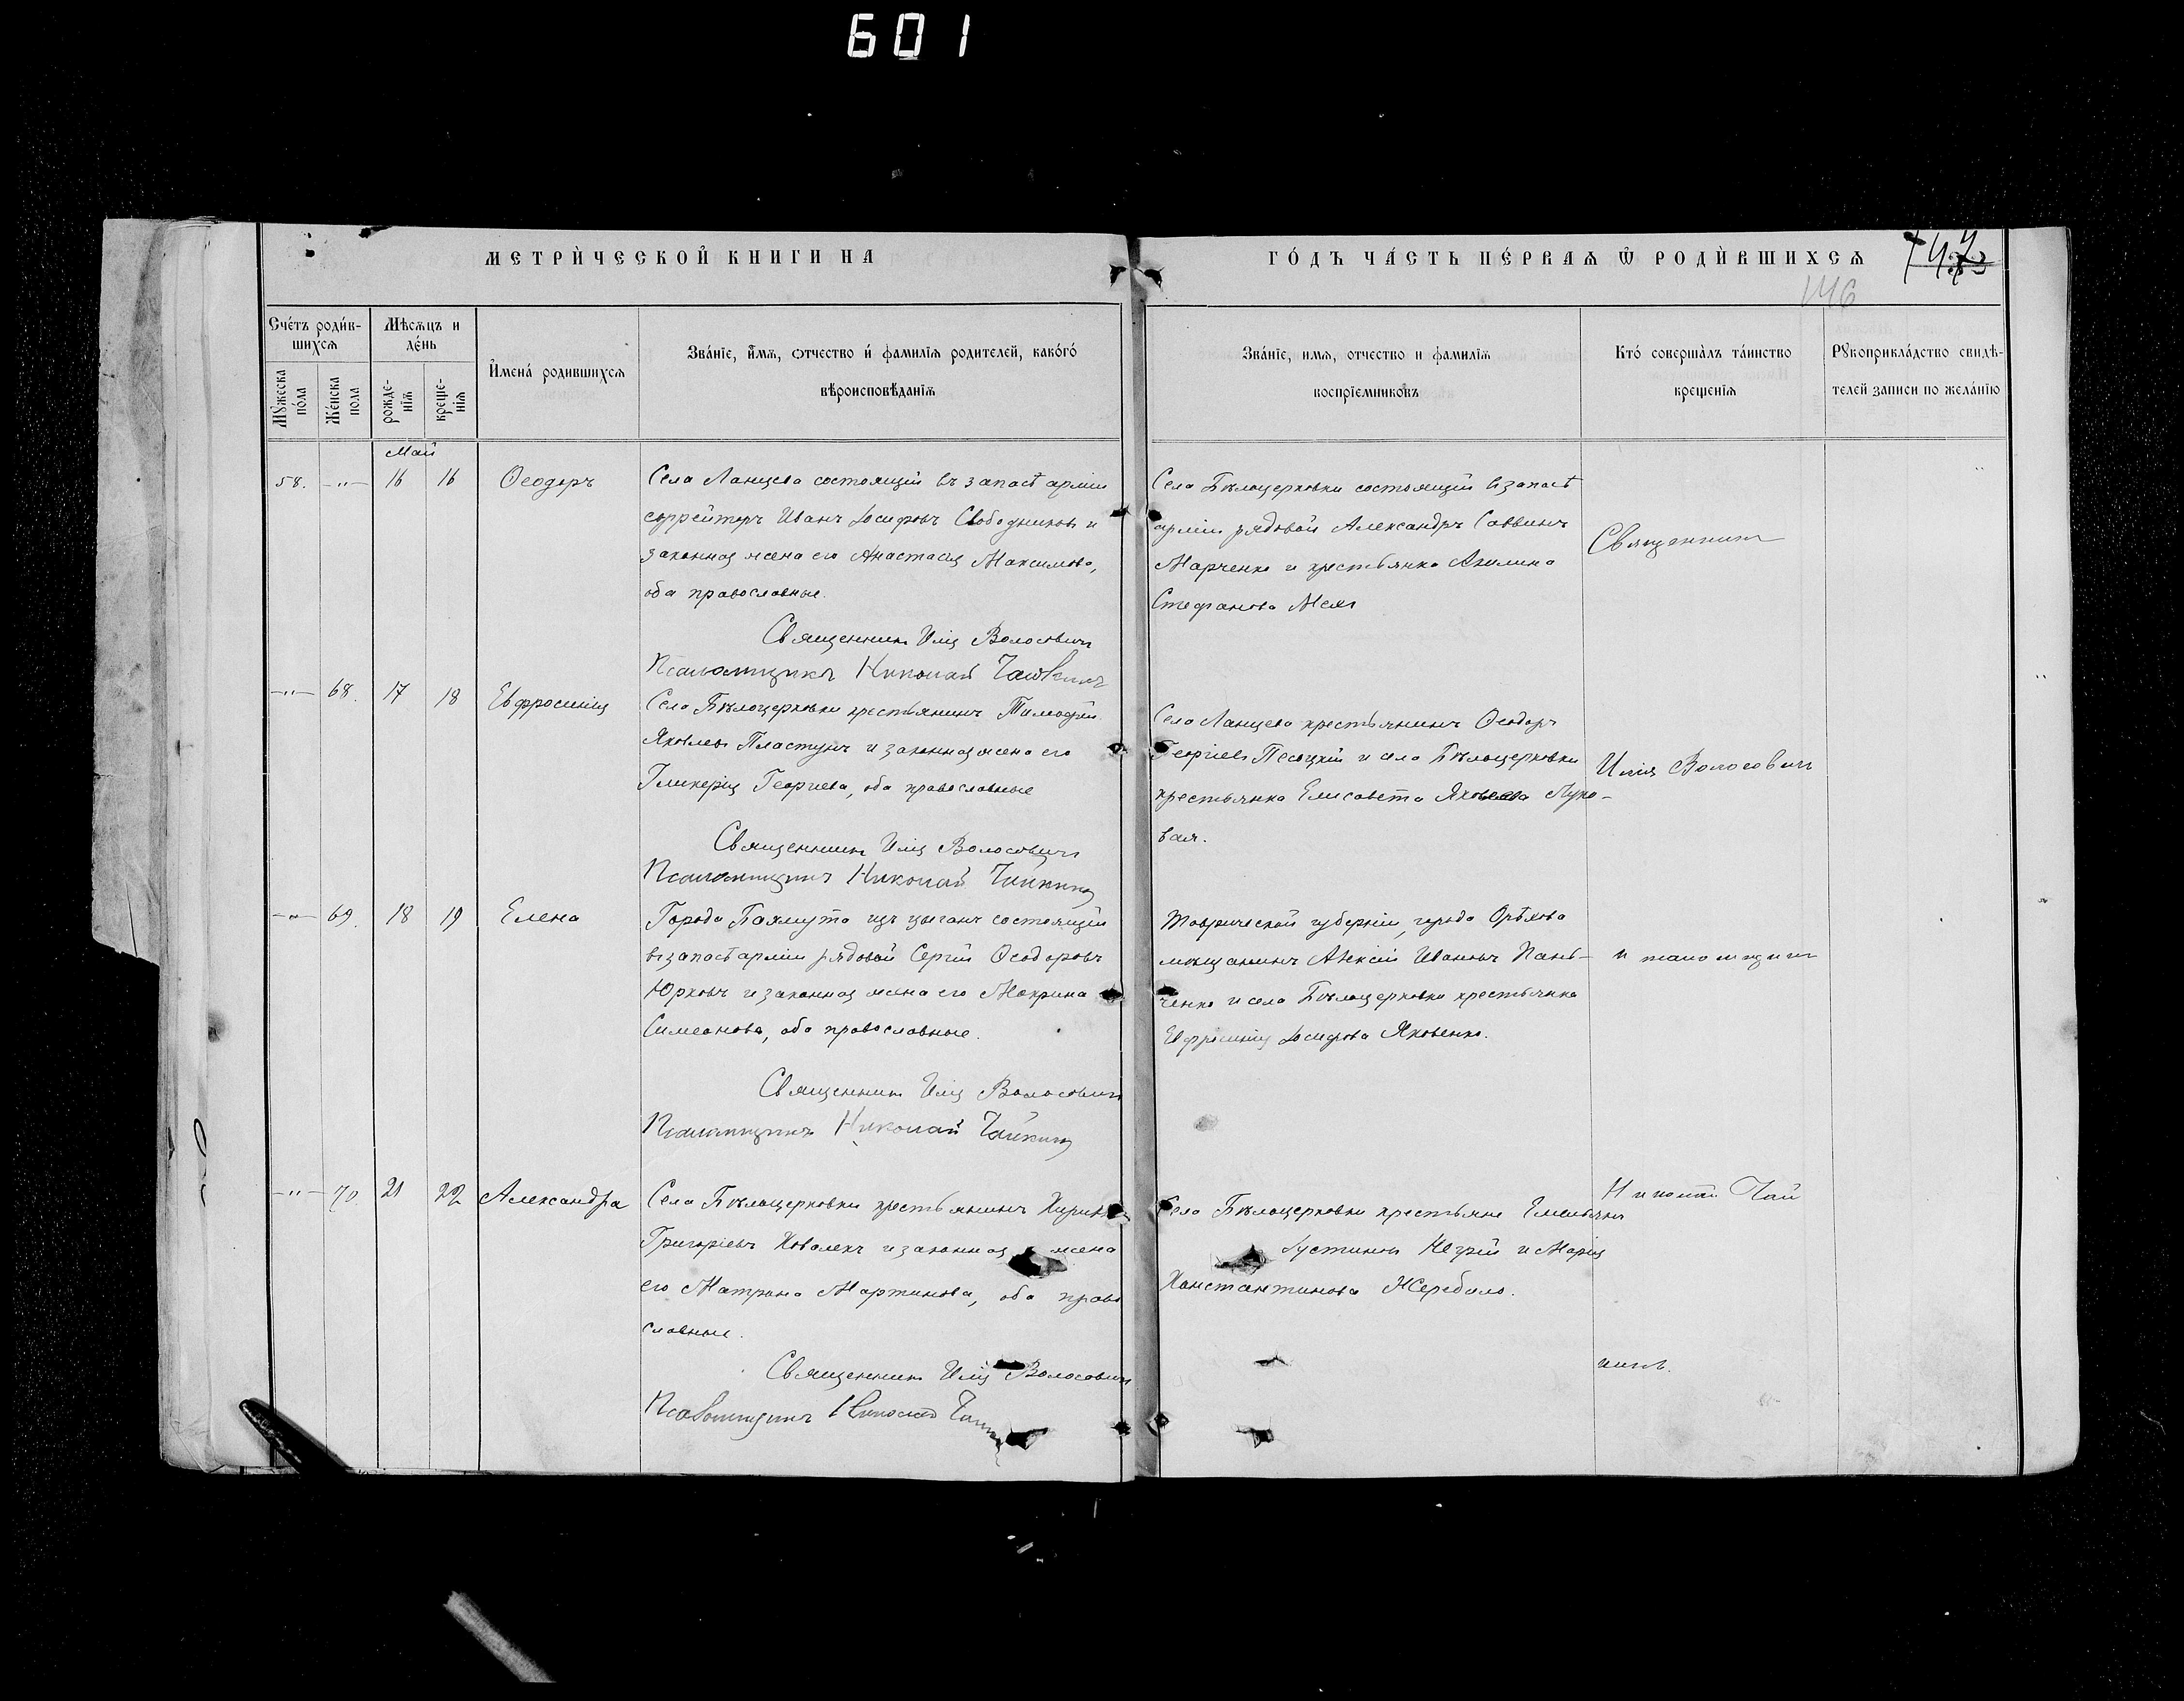 601
МЕТРИ́ЧЕСКОЙ КНИГИ НА
ГО́ДЪ ЧА́СТЬ ПЕ́РВАѦ Ѿ РОДИ́ВШИХСѦ
146
Сче́тъ роди́в-
шихсѧ
Мѣсѧцъ и
де́нь
Мꙋ́жеска
по́ла
Же́нска
пола
рожде-
нїѧ
креще-
нїѧ
И҆мена́ родившихсѧ
Зва́нїе, и҆́мѧ, ѻтчество и҆ фамилїѧ родителей, како́гѡ
вѣроисповѣданїѧ
Зва́нїе, имѧ, отчество и фамилїѧ
воспрїемникѡвъ
Кто́ соверша̀лъ та́инство
крещенїѧ
Рꙋкоприкла́дство свидѣ-
телей записи по жела́нїю
Май
58. —"— 16 16 Ѳеодоръ
Села Ланцева состоящій въ запасѣ арміи
ефрейторъ Иванъ Іосифовъ Свободниковъ и
законная жена его Анастасія Максимова,
оба православные.
Священникъ Илія Волосовичъ
Псаломщикъ Николай
Села Бѣлоцерковки состоящій въ запасѣ
арміи рядовой Александръ Саввинъ
Марченко и крестьянка Акилина
Стефанова
Священникъ
—"— 68. 17 18 Евфросинія
Села Бѣлоцерковки крестьянинъ Тимофей
Яковлевъ Пластунъ и законная жена его
Гликерія Георгиева, оба православные
Священникъ Илія Волосовичъ
Псаломщикъ Николай Чайкинъ
Села Ланцева крестьянинъ Ѳеодоръ
Георгіевъ Песоцкій и села Бѣлоцерковки
крестьянка Елисавета Яковлева Луко-
вая.
Илія Волосовичъ
—"— 69. 18 19 Елена
Города Бахмута изъ цыганъ состоящій
въ запасѣ арміи рядовой Сергій Ѳеодоровъ
Юрковъ и законная жена его Макрина
Симеонова, оба православные.
Священникъ Илія Волосовичъ
Псаломщикъ Николай Чайкинъ
Таврической губерніи, города Орѣхова
мѣщанинъ Алексій Ивановъ Пань-
ченко и села Бѣлоцерковки крестьянка
Евфросинія Іосифова Яковенко.
и псаломщикъ
—"— 70. 21 22 Александра
Села Бѣлоцерковки крестьянинъ
Григоріевъ Ковалекъ и законная жена
его Матрона Мартинова, оба право
славные.
Священникъ Илія Волосовичъ
Псаломщикъ Николай
Села Бѣлоцерковки крестьяне Емельянъ
Іустиновъ Негрій и Марія
Константинова Жеребило.
Николай Чай
кинъ.